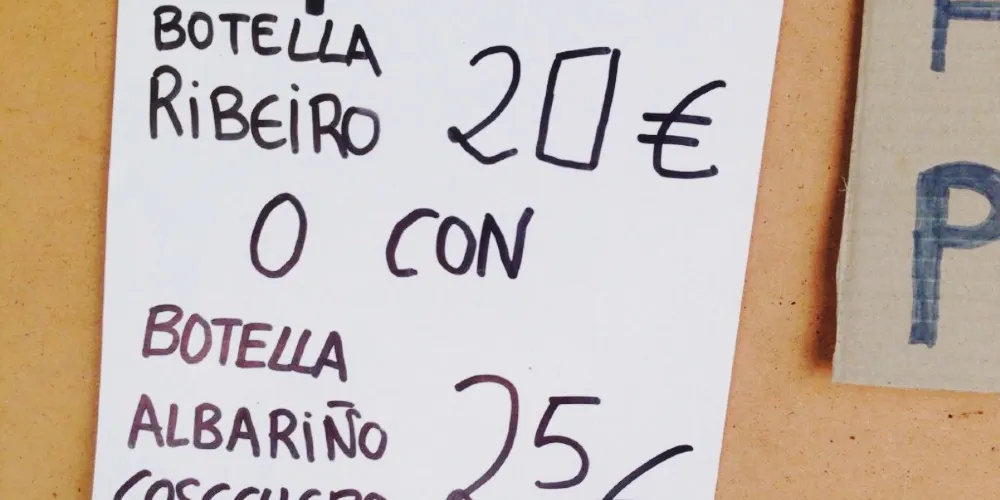 BOTELLA
RiBEiRO 20€
O CON
BOTELLA
ALBARiÑO 25€
P